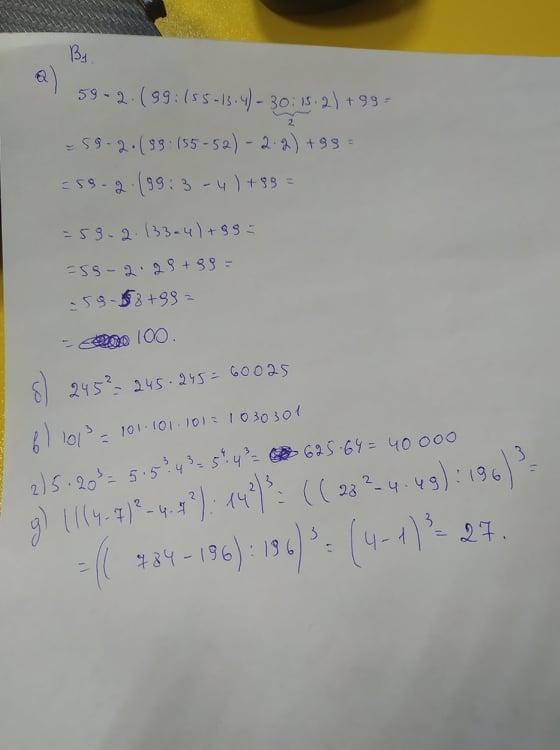 В₁
а)
59 - 2·(99:(55-13·4) - 30:15·2) + 99 =
2
= 59 - 2·(99:(55-52) - 2·2) + 99 =
= 59 - 2·(99:3 - 4) + 99 =
= 59 - 2·(33-4) + 99 =
= 59 - 2·29 + 99 =
= 59 - 58 + 99 =
= 100.
б) 245² = 245·245 = 60025
в) 101³ = 101·101·101 = 1030301
г) 5·20³ = 5·5³·4³ = 5⁴·4³ = 625·64 = 40 000
д) (((4·7)² - 4·7²) : 14²)³ = ((28² - 4·49) : 196)³ =
= ((784 - 196) : 196)³ = (4 - 1)³ = 27.